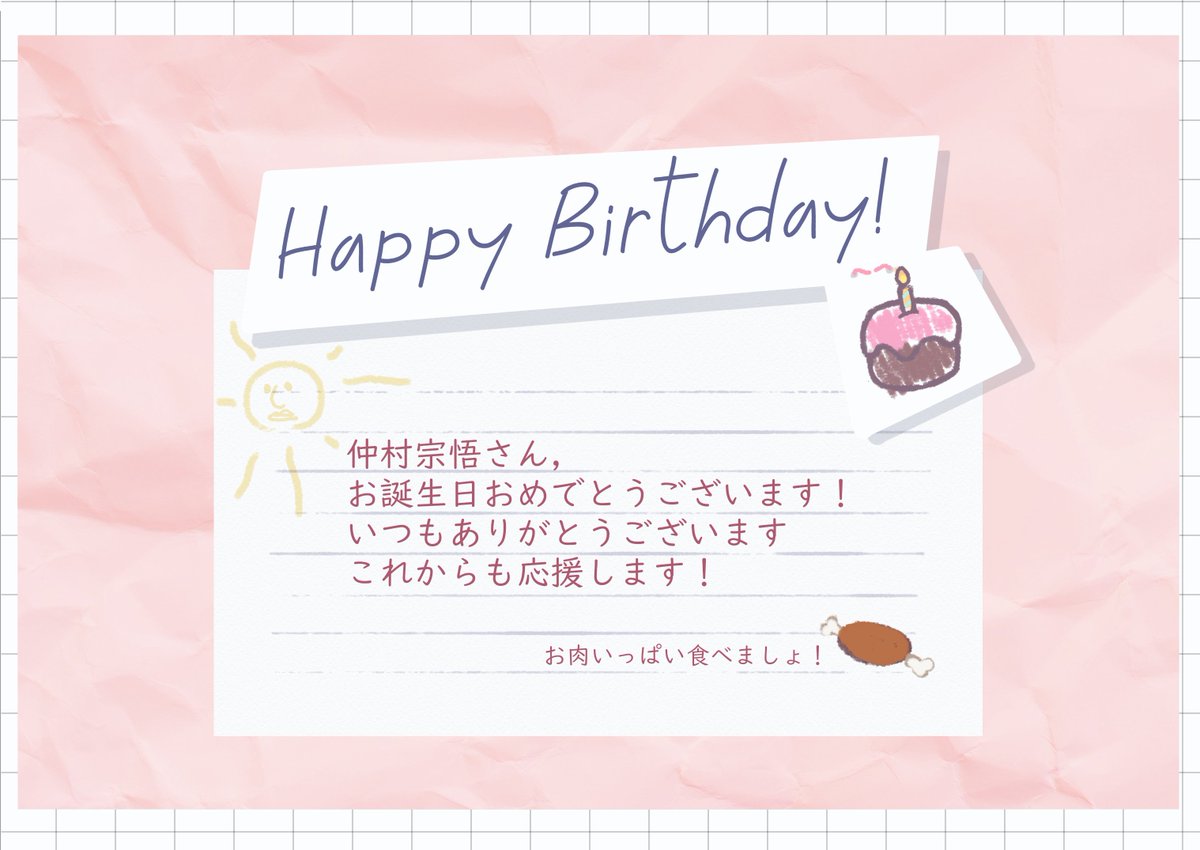 Happy Birthday!
仲村宗悟さん,
お誕生日おめでとうございます！
いつもありがとうございます
これからも応援します！
お肉いっぱい食べましょ！